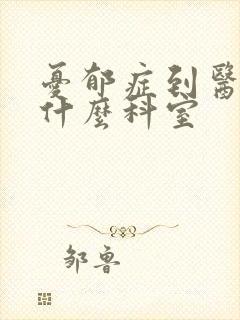 憂郁症到醫
什麼科室
邹鲁